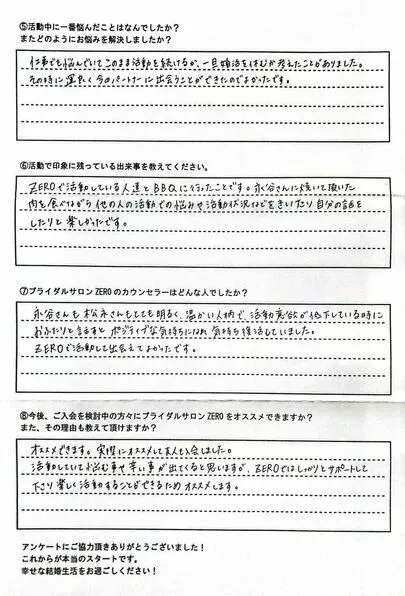 ⑤活動中に一番悩んだことはなんでしたか？
またどのようにお悩みを解決しましたか？
仕事でも悩んでいてこのまま活動を続けるか、一旦婚活を休むか考えたことがありました。
その時に運良く今のパートナーに出会うことができたのでよかったです。
⑥活動で印象に残っている出来事を教えてください。
ZEROで活動している人達とBBQに行ったことです。永谷さんに焼いて頂いた
肉を食べながら他の人の活動での悩みや活動状況などをきいたり自分の話を
したりと楽しかったです。
⑦ブライダルサロンZEROのカウンセラーはどんな人でしたか？
永谷さんも松永さんもとても明るく、温かい人柄で、活動意欲が低下している時に
おふたりと話すとポジティブな気持ちになれ気持ち復活していました。
ZEROで活動して出会えてよかったです。
⑧今後、ご入会を検討中の方々にブライダルサロンZEROをオススメできますか？
また、その理由も教えて頂けますか？
オススメできます。実際にオススメして友人も入会しました。
活動していて悩む事や辛い事が出てくると思いますが、ZEROではしっかりとサポートして
下さり楽しく活動することができるためオススメします。
アンケートにご協力頂きありがとうございました！
これからが本当のスタートです。
幸せな結婚生活をお過ごしください！